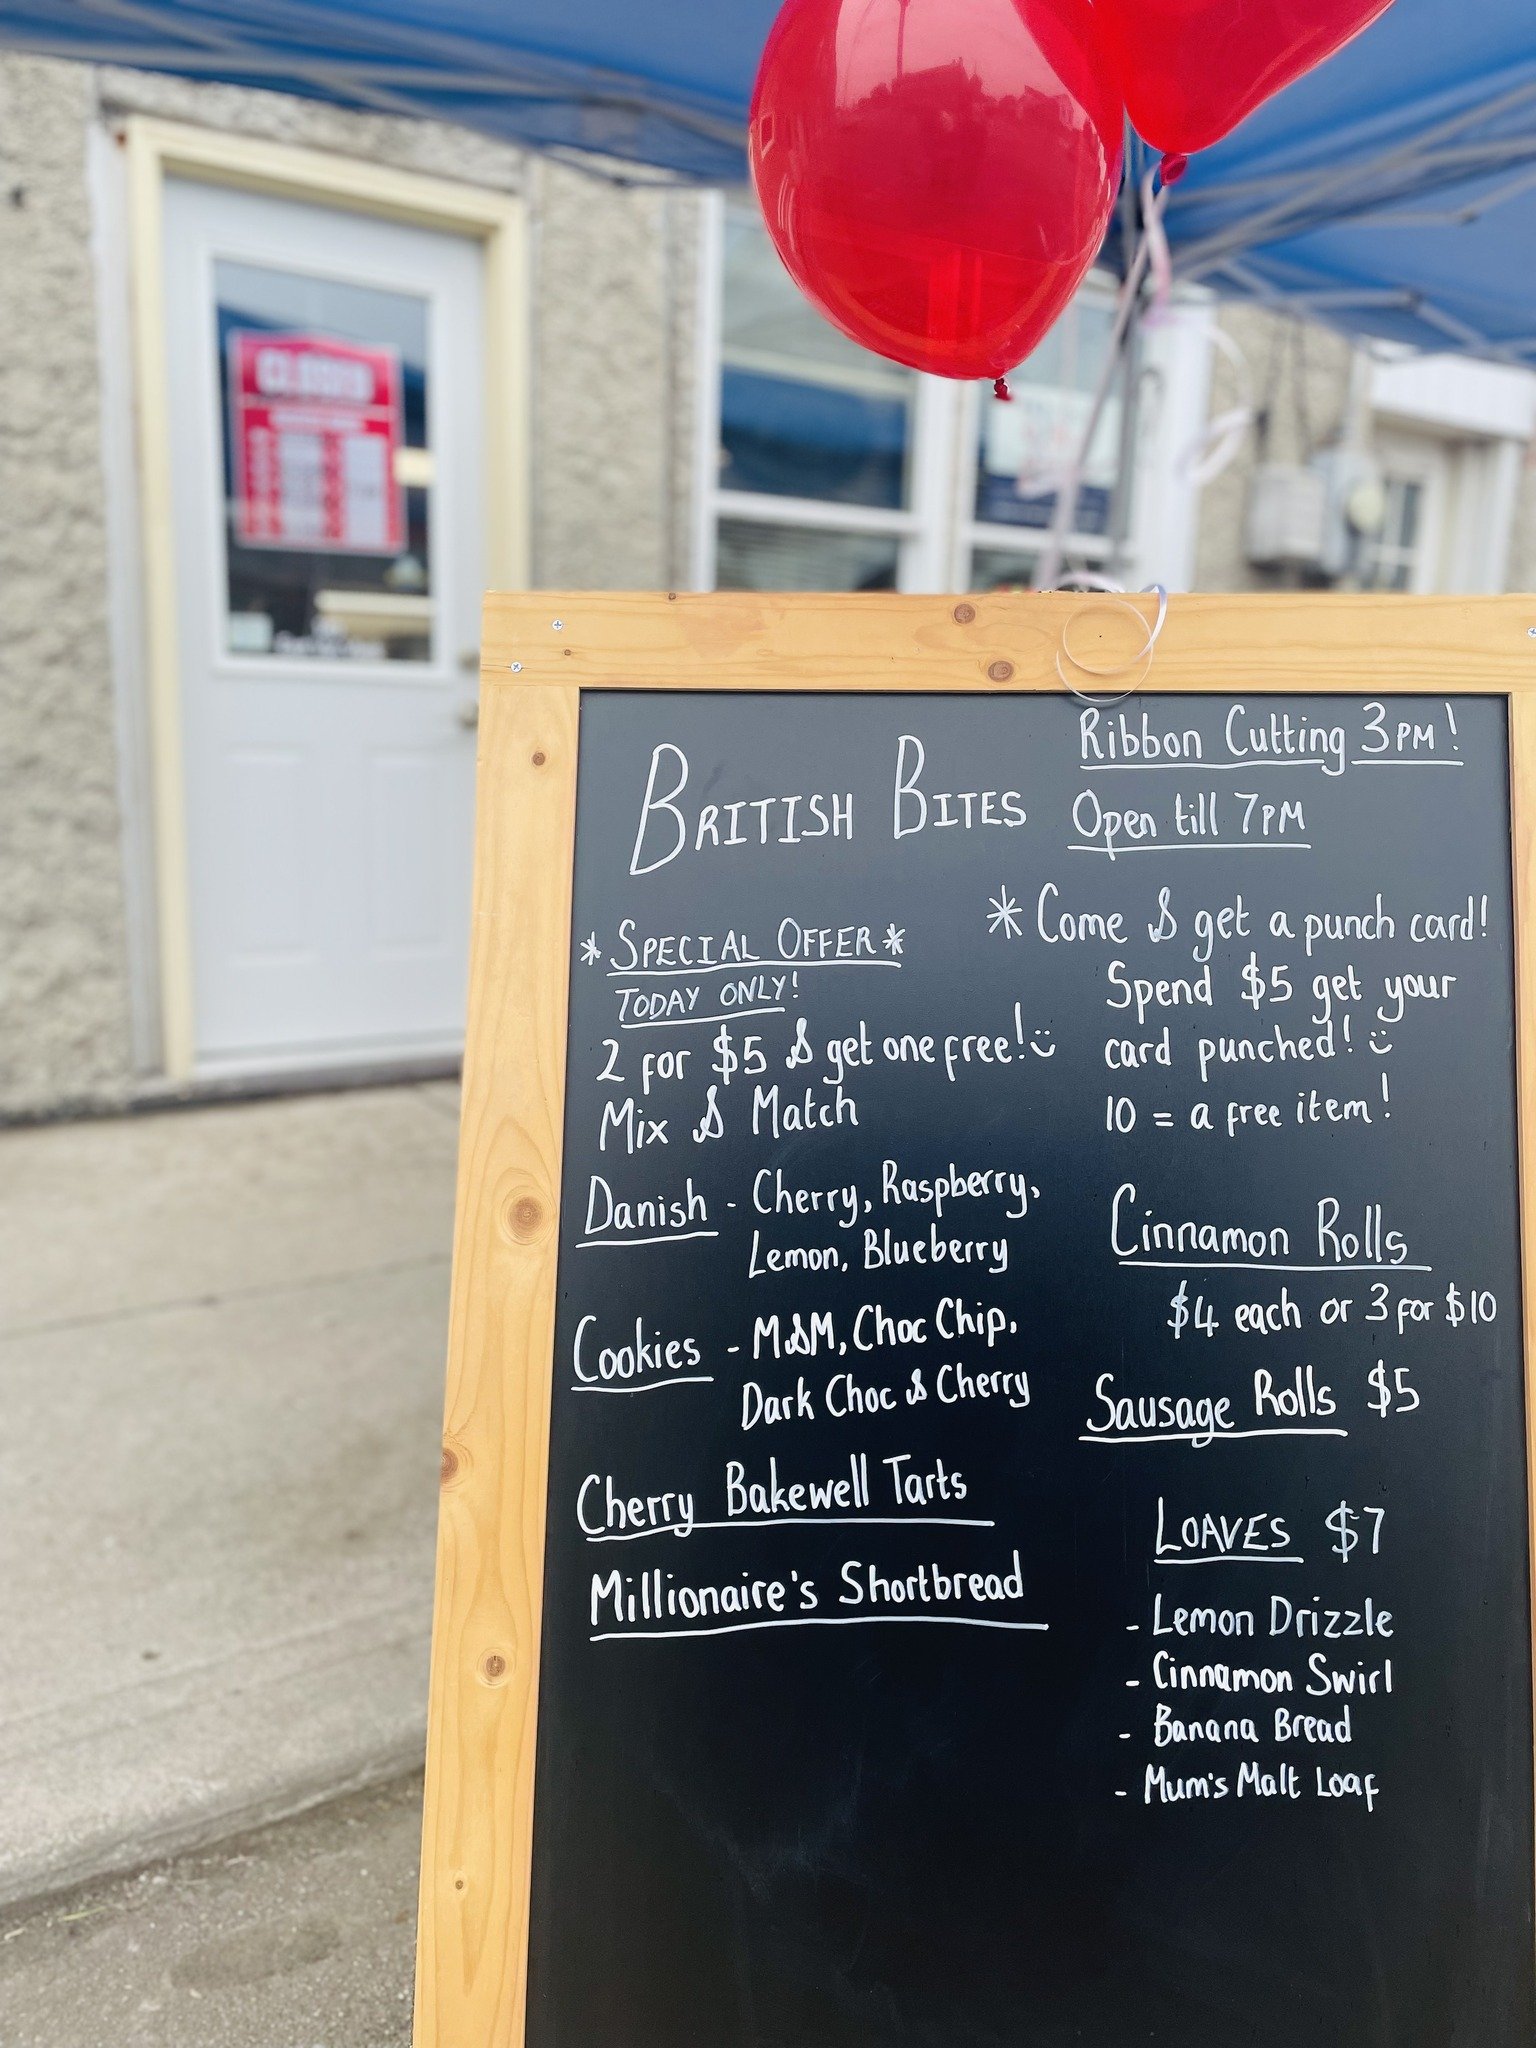 CLOSED
BRITISH BITES
Ribbon Cutting 3PM!
Open till 7PM
* SPECIAL OFFER *
TODAY ONLY!
2 for $5 & get one free!
Mix & Match
Danish - Cherry, Raspberry,
Lemon, Blueberry
Cookies - M&M, Choc Chip,
Dark Choc & Cherry
Cherry Bakewell Tarts
Millionaire's Shortbread
* Come & get a punch card!
Spend $5 get your
card punched!
10 = a free item!
Cinnamon Rolls
$4 each or 3 for $10
Sausage Rolls $5
LOAVES $7
- Lemon Drizzle
- Cinnamon Swirl
- Banana Bread
- Mum's Malt Loaf